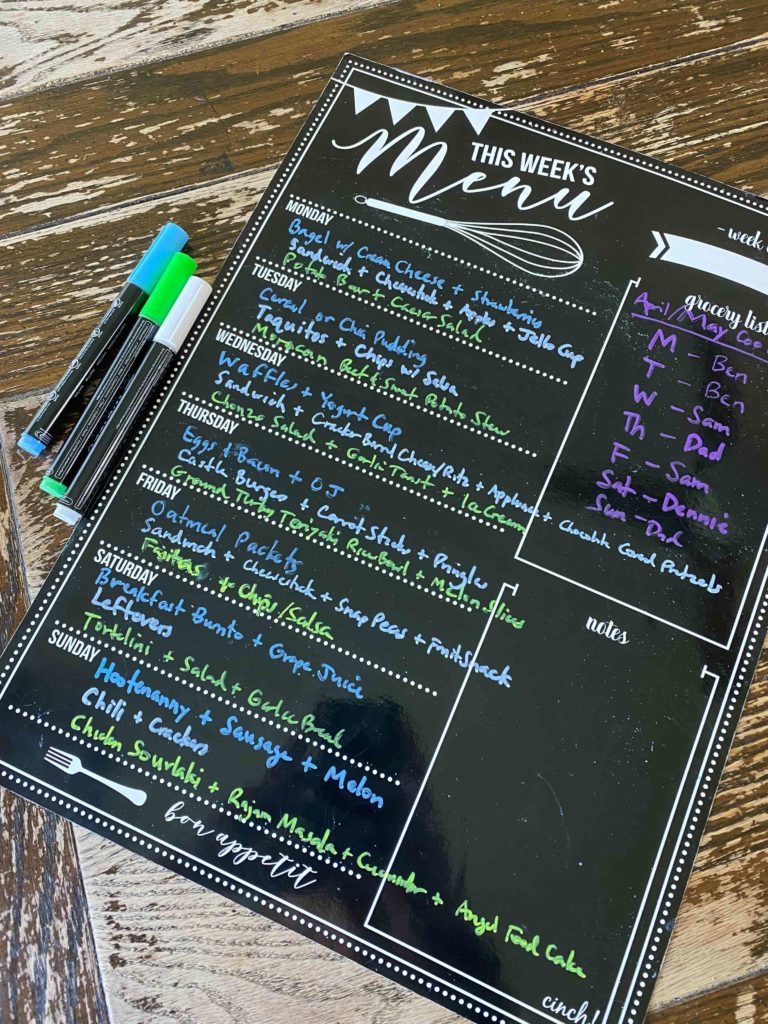 THIS WEEK'S
Menu
MONDAY
Bagel w/ Cream Cheese + Strawberries
Sandwich + Cheesestick + Apples + Jello Cup
Potato Bar + Caesar Salad
TUESDAY
Cereal or Chia Pudding
Taquitos + Chips w/ Salsa
Moroccan Beef & Sweet Potato Stew
WEDNESDAY
Waffles + Yogurt Cup
Sandwich + Cracker Barrel Cheese/Ritz + Applesauce + Chocolate Covered Pretzels
Chorizo Salad + Garlic Toast + Ice Cream
THURSDAY
Eggs + Bacon + OJ
Castle Burgers + Carrot Sticks + Pringles
Ground Turkey Teriyaki Rice Bowl + Melon Slices
FRIDAY
Oatmeal Packets
Sandwich + Cheesestick + Snap Peas + Fruit Snack
Fajitas + Chips/Salsa
SATURDAY
Breakfast Burrito + Grape Juice
Leftovers
Tortelini + Salad + Garlic Bread
SUNDAY
Hootenanny + Sausage + Melon
Chili + Crackers
Chicken Souvlaki + Rajam Masala + Cucumber + Angel Food Cake
bon appetit
- week
grocery list
April/May
M - Ben
T - Ben
W - Sam
Th - Dad
F - Sam
Sat - Dennie
Sun - Dad
notes
cinch!